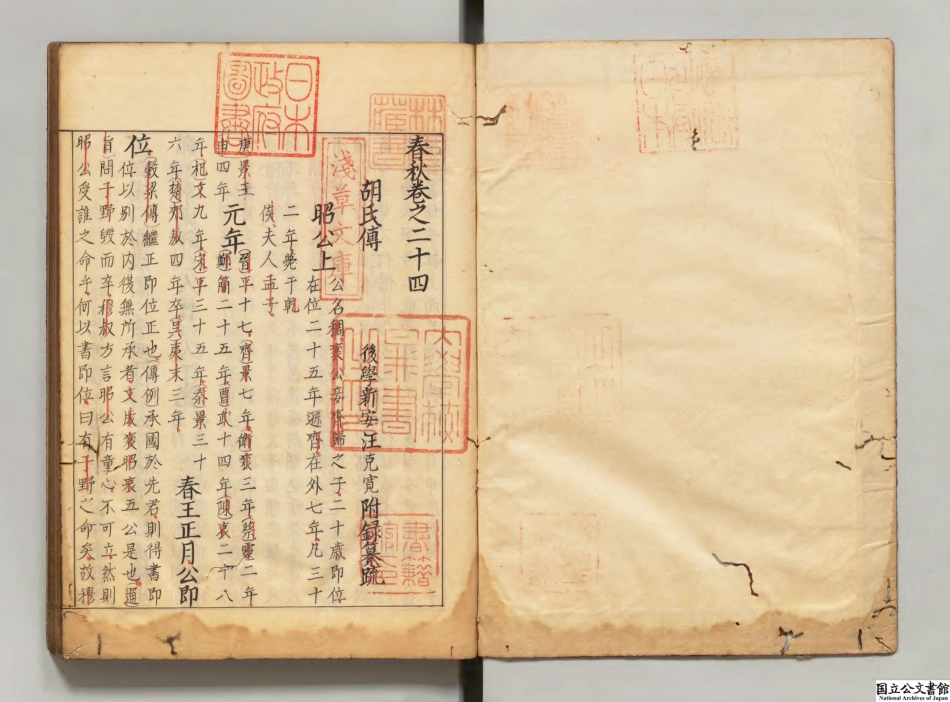 春秋卷之二十四
胡氏傳　後學新安汪克寬附録纂疏
昭公上　公名稠襄公妾齊歸之子二十歲即位
在位二十五年遜齊在外七年凡三十
二年薨于乾
侯夫人孟子
庚景王
申四年
元年
晋平十七齊景七年衛襄三年蔡靈二年
鄭簡二十五年曹武十四年陳哀二十八
年杞文九年宋平三十五年秦景三十
六年楚郟敖四年卒吳夷末三年
春王正月公即
位
穀梁傳繼正即位正也傳例承國於先君則得書即
位以别於内後無所承者文成襄昭哀五公是也通
旨問子野毁而卒穆叔方言昭公有童心不可立然則
昭公受誰之命乎何以書即位曰有子野之命矣故穆
日本
政府
圖書
淺草文庫
書籍
林
國立公文書館
National Archives of Japan